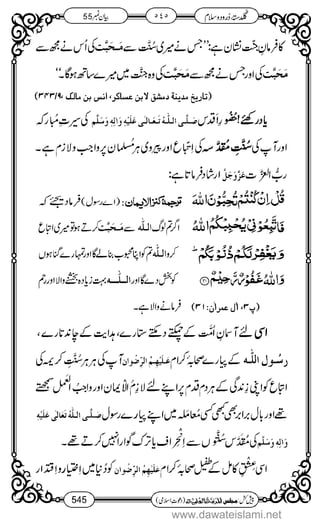 گلدستۂ دُرود و سلام ٥٤٥ بیان نمبر55
کا فرمانِ جنّت نشان ہے: ’’جس نے میری سُنّت سے مَحَبَّت کی اُس نے مجھ سے
مَحَبَّت کی اور جس نے مجھ سے مَحَبَّت کی وہ جنّت میں میرے ساتھ ہوگا۔‘‘
(تاریخ مدینة دمشق لابن عساکر، انس بن مالك ۹/ ۳۴۳)
یاد رکھئے! حُضُورِ اَقدس صَلَّی اللہُ تَعَالٰی عَلَیْہِ وَاٰلِہٖ وَسَلَّمَ کی سیرتِ مُبارکہ
اور آپ کی سُنّتِ مُقدَّسہ کی اِتباع اور پیروی ہر مُسلمان پر واجب و لازم ہے۔
ربُّ العِزَّت عَزَّوَجَلَّ ارشاد فرماتا ہے:
قُلْ اِنْ كُنْتُمْ تُحِبُّوْنَ اللّٰهَ ترجمۂ کنز الایمان: (اے رسول) فرما دیجئے کہ
فَاتَّبِعُوْنِیْ یُحْبِبْكُمُ اللّٰهُ اگر تم لوگ اللہ سے مَحَبَّت کرتے ہو تو میری اتباع
وَ یَغْفِرْ لَكُمْ ذُنُوْبَكُمْ ؕ کرو اللہ تم کو اپنا محبوب بنالے گا اور تمہارے گناہوں
وَ اللّٰهُ غَفُوْرٌ رَّحِیْمٌ ۝۳۱ کو بخش دے گا اور اللہ بہت زیادہ بخشنے والا اور رحم
(پ۳، اٰل عمران: ۳۱) فرمانے والا ہے۔
اسی لئے آسمانِ اُمّت کے چمکتے دمکتے ستارے، ہدایت کے چاند تارے،
رسولُ اللہ کے پیارے صحابۂ کرام عَلَیْہِمُ الرِّضْوَان آپ کی ہر ہر سُنّتِ کریمہ کی
اتباع کو اپنی زندگی کے ہر دم قدم پر اپنے لئے لازِمُ الْایمان اور واجبُ العمل سمجھتے
تھے اور بال برابر بھی کبھی کسی مُعاملہ میں اپنے پیارے رسول صَلَّی اللہُ تَعَالٰی عَلَیْہِ
وَاٰلِہٖ وَسَلَّمَ کی مُقدَّس سُنّتوں سے اِنْحِراف یا ترک گوارا نہیں کرتے تھے۔
اسی عشقِ کامل کے طفیل صحابۂ کرام عَلَیْہِمُ الرِّضْوَان کو دُنیا میں اختیار و اقتدار
545
www.dawateislami.net